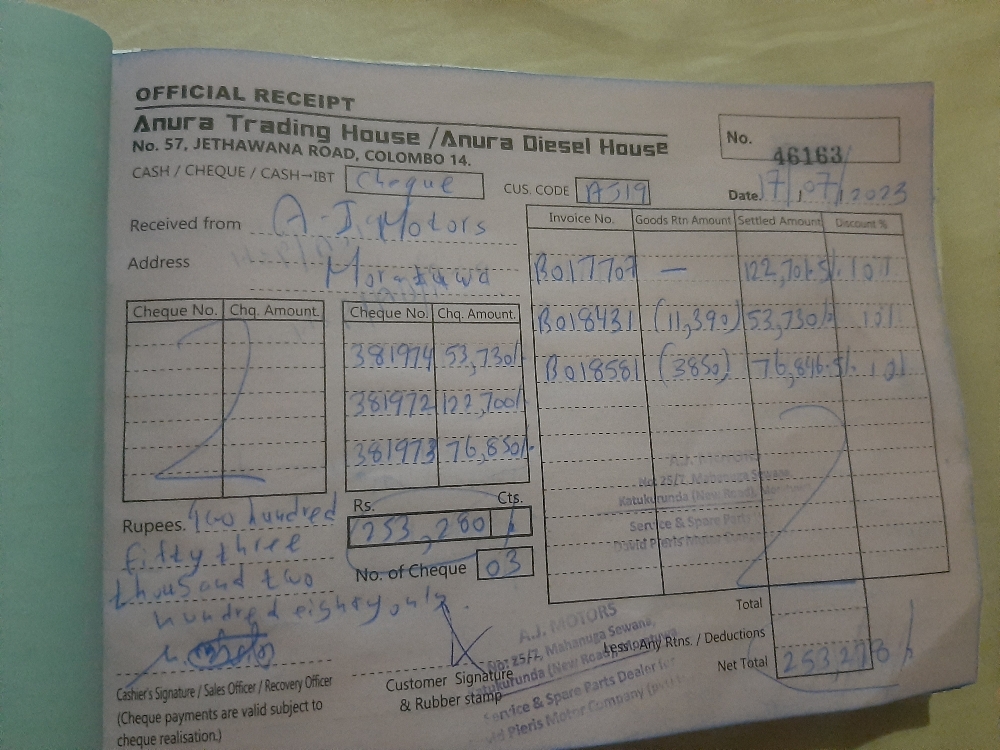 OFFICIAL RECEIPT
Anura Trading House / Anura Diesel House
No. 57, JETHAWANA ROAD, COLOMBO 14.
No. 46163
CASH / CHEQUE / CASH→IBT Cheque
CUS. CODE AJ19
Date. 17/07/2023
Received from A-J. Motors
Address Moratuwa
Invoice No. Goods Rtn Amount Settled Amount Discount %
B017707 — 122,701.5/- 10%
B018431 (11,390) 53,730/- 10%
B018581 (3850) 76,846.5/- 10%
Cheque No. Chq. Amount.
Cheque No. Chq. Amount.
381974 53,730/-
381972 122,700/-
381973 76,850/-
Rs. Cts.
253,280 /-
No. of Cheque 03
Rupees. Two hundred
fifty three
thousand two
hundred eighty only.
A.J. MOTORS
No: 25/7, Mahanuga Sewana,
Katukurunda (New Road), Moratuwa
Service & Spare Parts
David Pieris Motor
Total
Less: Any Rtns. / Deductions
Net Total 253,278/-
A.J. MOTORS
No: 25/7, Mahanuga Sewana,
Katukurunda (New Road), Moratuwa
Service & Spare Parts Dealer for
David Pieris Motor Company
Cashier's Signature / Sales Officer / Recovery Officer
(Cheque payments are valid subject to
cheque realisation.)
Customer Signature
& Rubber stamp